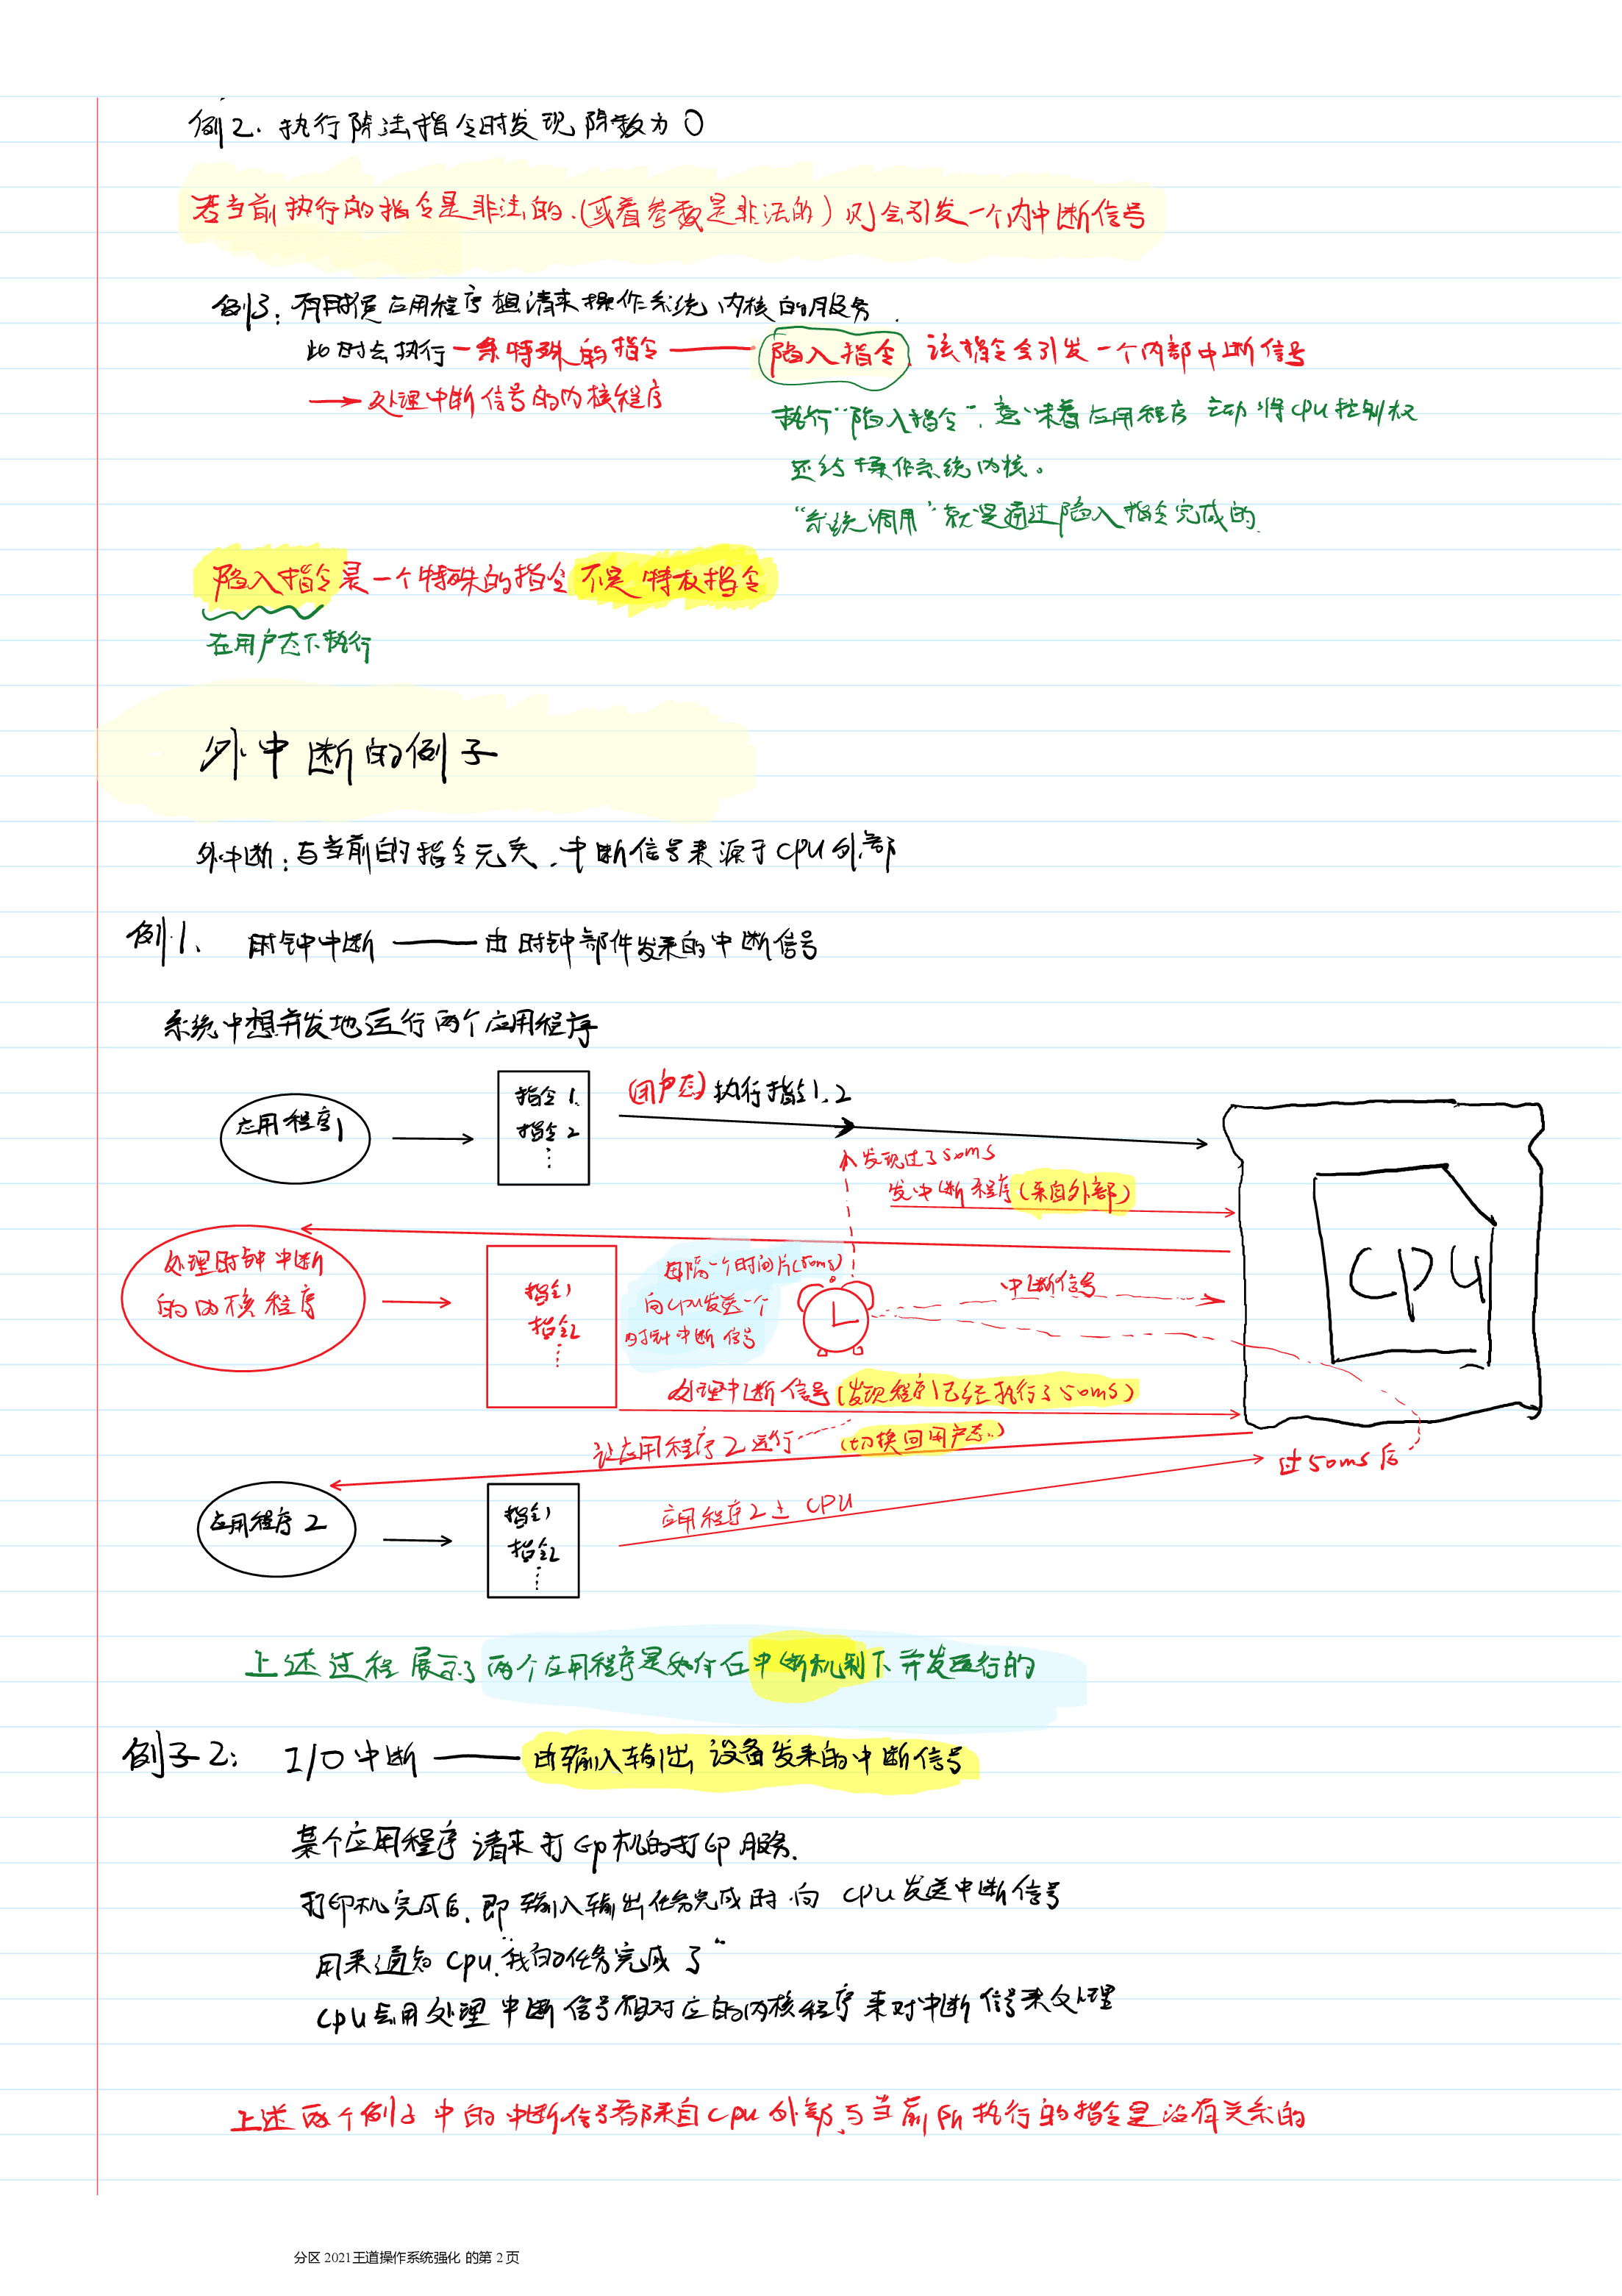 例2. 执行除法指令时发现除数为0
若当前执行的指令是非法的.(或者参数是非法的)则会引发一个内中断信号
例3: 有时候应用程序想请求操作系统内核的服务.
此时会执行一条特殊的指令——陷入指令. 该指令会引发一个内部中断信号
→处理中断信号的内核程序
执行"陷入指令". 意味着应用程序主动将CPU控制权
还给操作系统内核。
"系统调用"就是通过陷入指令完成的.
陷入指令是一个特殊的指令 不是特权指令
在用户态下执行
外中断的例子
外中断: 与当前的指令无关. 中断信号来源于CPU外部
例1、 时钟中断——由时钟部件发来的中断信号
系统中想并发地运行两个应用程序
应用程序1
指令1.
指令2
⋮
(用户态) 执行指令1、2
发现过了50ms
发中断程序(来自外部)
处理时钟中断
的内核程序
指令1
指令2
⋮
每隔一个时间片(50ms)
向CPU发送一个
时钟中断信号
中断信号
CPU
处理中断信号(发现程序1已经执行了50ms)
让应用程序2运行
(切换回用户态..)
过50ms后
应用程序2
指令1
指令2
⋮
应用程序2上CPU
上述过程展示了两个应用程序是如何在中断机制下并发运行的
例子2: I/O中断——由输入输出设备发来的中断信号
某个应用程序请求打印机的打印服务.
打印机完成后. 即输入输出任务完成时 向 CPU发送中断信号
用来通知CPU."我的任务完成了"
CPU会用处理中断信号相对应的内核程序来对中断信号来处理
上述两个例子中的中断信号都来自CPU外部,与当前所执行的指令是没有关系的
分区 2021王道操作系统强化 的第 2 页